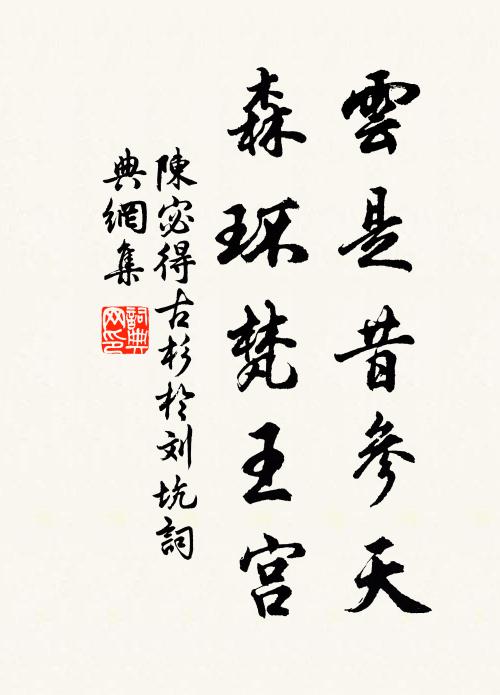 雲是昔參天
森环梵王宫
陳宓得古杉於刘坑詞
典網集
詞典
网印